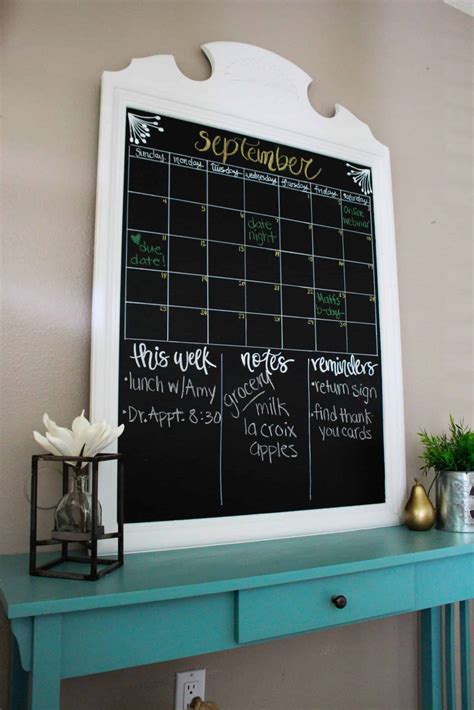 september
Sunday monday tuesday wednesday thursday friday saturday
Online
webinar
date
night
due
date!
Matt's
b-day
this week
•lunch w/Amy
•Dr. Appt. 8:30
notes
grocery
milk
la croix
apples
reminders
•return sign
•find thank
you cards